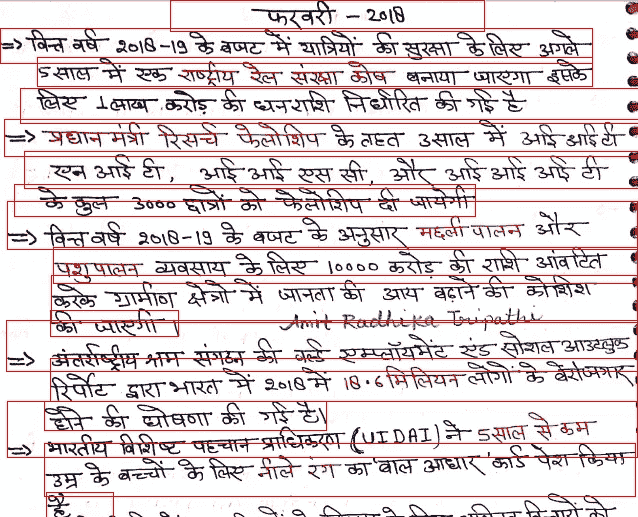 फरवरी - 2018
=> वित्त वर्ष 2018-19 के बजट में यात्रियों की सुरक्षा के लिए अगले
5 साल में एक राष्ट्रीय रेल संरक्षा कोष बनाया जाएगा इसके
लिए 1 लाख करोड़ की धनराशि निर्धारित की गई है
=> प्रधान मंत्री रिसर्च फेलोशिप के तहत 3 साल में आई आई टी
एन आई टी, आई आई एस सी, और आई आई आई टी
के कुल 3000 छात्रों को फेलोशिप दी जायेगी
=> वित्त वर्ष 2018-19 के बजट के अनुसार मछली पालन और
पशुपालन व्यवसाय के लिए 10000 करोड़ की राशि आंवटित
करके ग्रामीण क्षेत्रों में जानता की आय बढ़ाने की कोशिश
की जाएगी।
Amit Radhika Tripathi
=> अंतर्राष्ट्रीय श्रम संगठन की वर्ल्ड एम्प्लॉयमेंट एंड सोशल आउटलुक
रिर्पोट द्वारा भारत में 2018 में 18.6 मिलियन लोगों के बेरोजगार,
होने की घोषणा की गई है।
=> भारतीय विशिष्ट पहचान प्राधिकरण (UIDAI) ने 5 साल से कम
उम्र के बच्चों के लिए नीले रंग का 'बाल आधार' कार्ड पेश किया
है